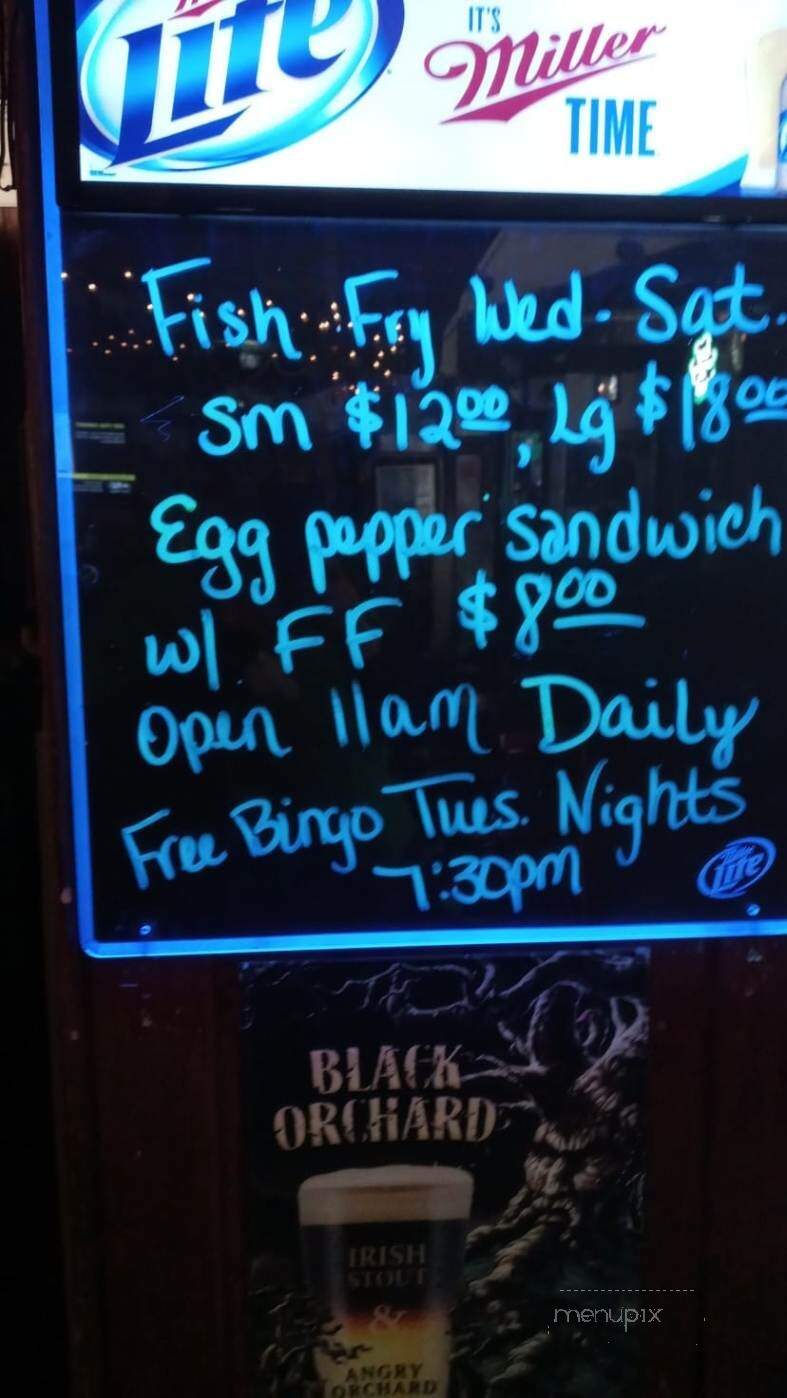 Lite
IT'S
Miller
TIME
Fish Fry Wed - Sat.
Sm $12.00, Lg $18.00
Egg pepper sandwich
w/ FF $8.00
Open 11am Daily
Free Bingo Tues. Nights
7:30pm
Lite
BLACK
ORCHARD
IRISH
STOUT
&
ANGRY
ORCHARD
menupix